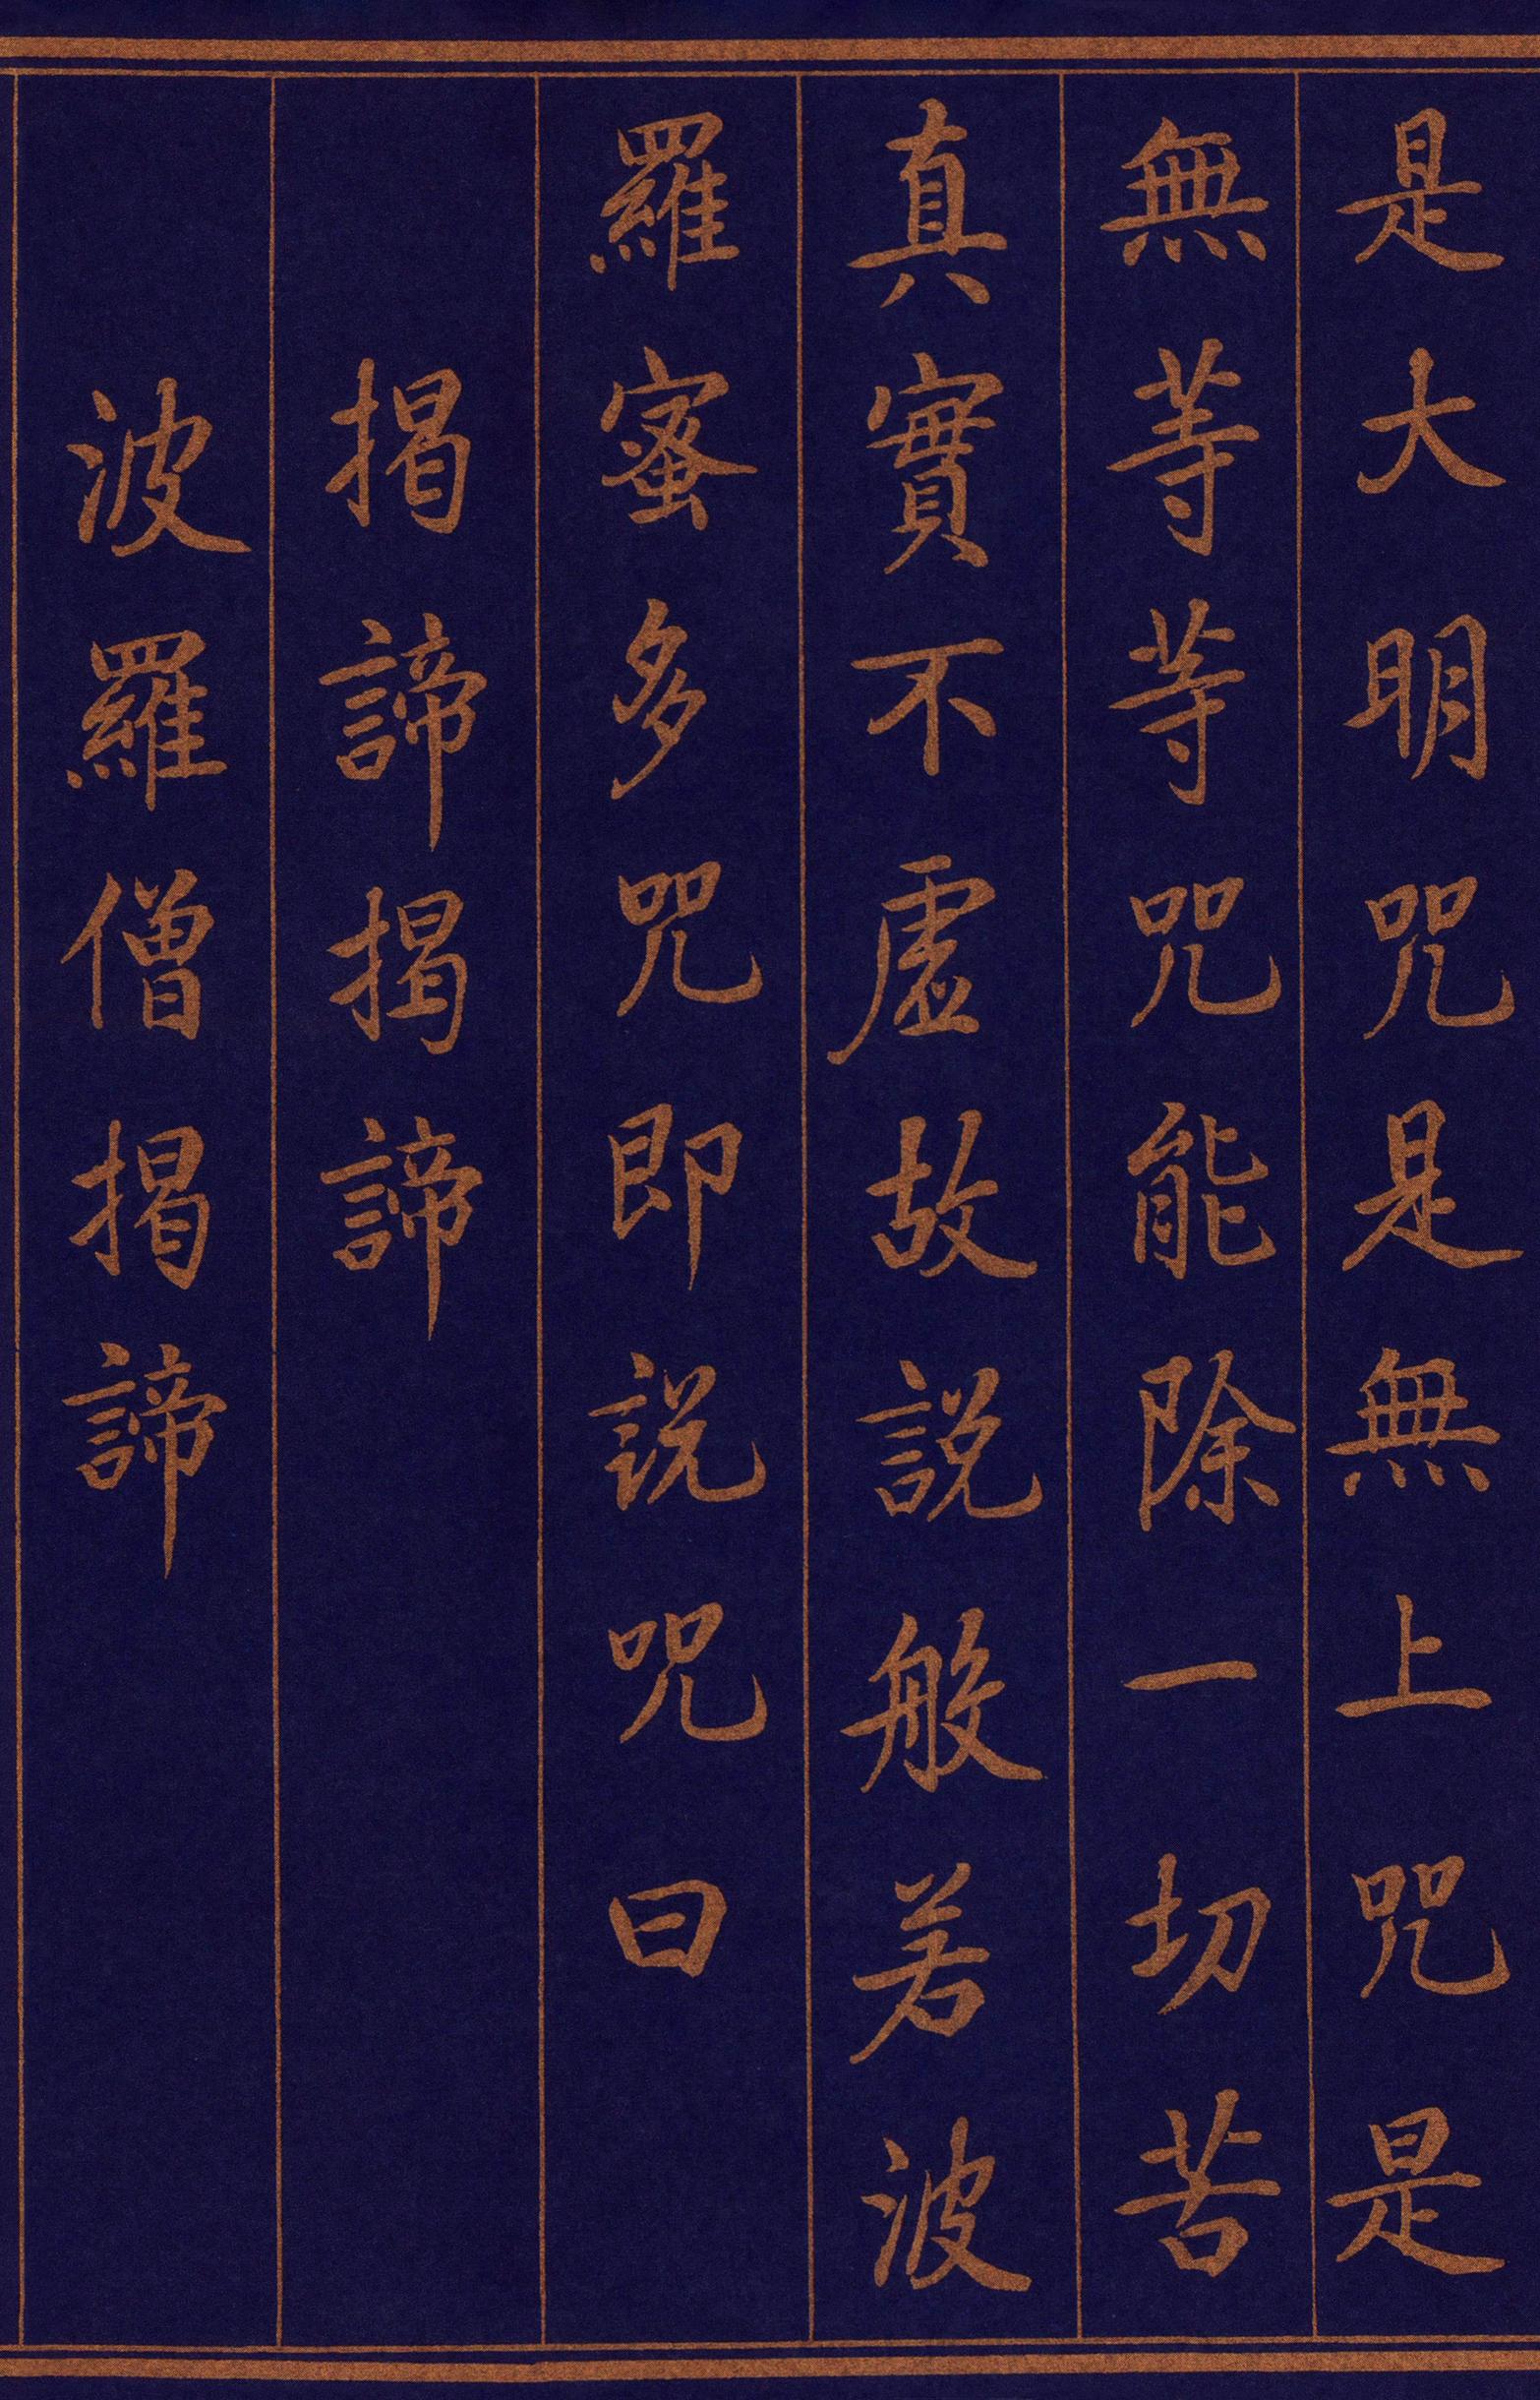 是大明咒是無上咒是
無等等咒能除一切苦
真實不虛故說般若波
羅蜜多咒即說咒曰
揭諦揭諦
波羅僧揭諦